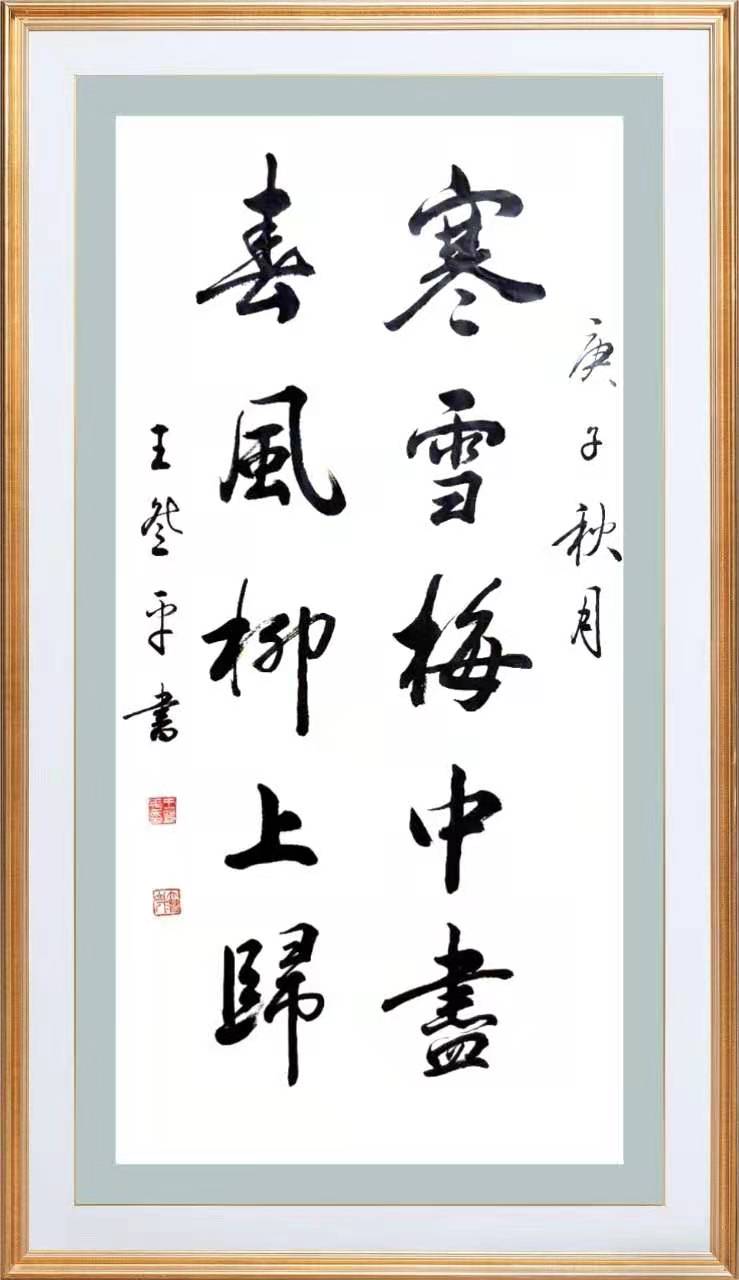 庚子秋月
寒雪梅中盡
春風柳上歸
王平書